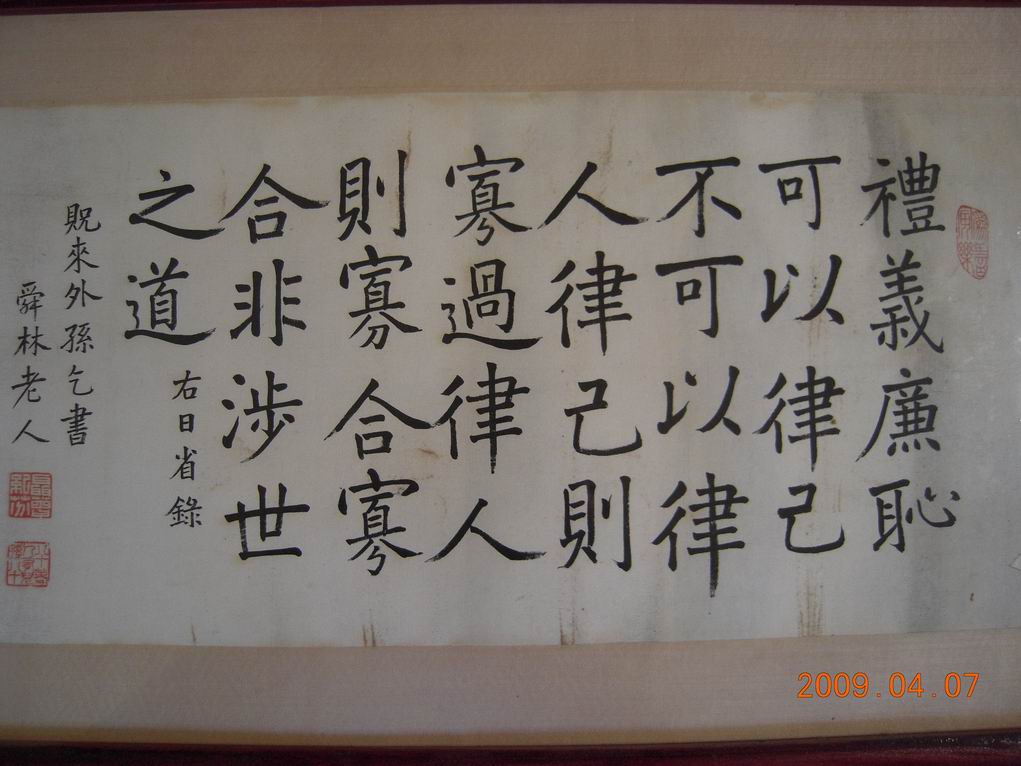 禮義廉恥
可以律己
不可以律
人律己則
寡過律人
則寡合寡
合非涉世
之道
右日省錄
貺來外孫乞書
舜林老人
2009.04.07